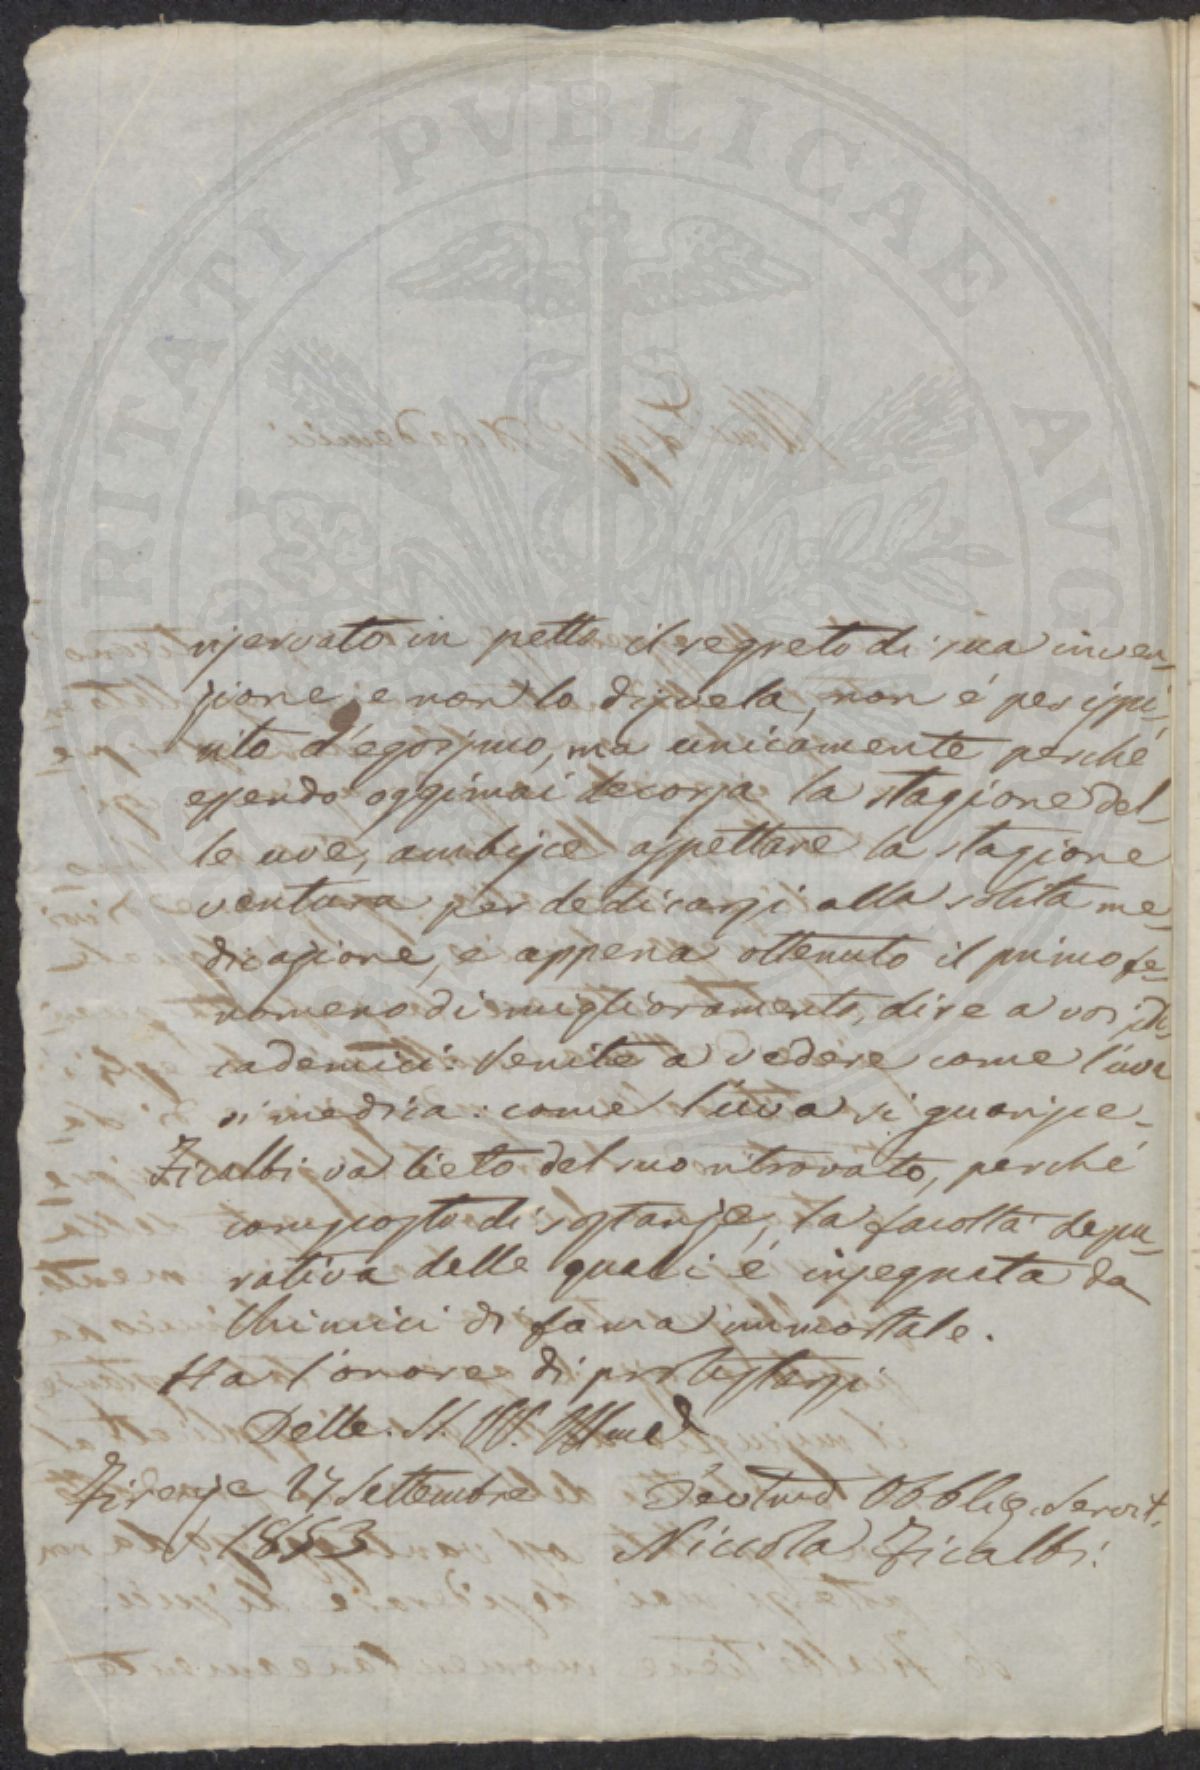 PROSPERITATI PVBLICAE AVGENDAE
riservato in petto il segreto di sua inven-
zione, e non lo disvela, non é per ispi-
rito d'egoismo, ma unicamente perché
essendo oggimai decorsa la stagione del-
le uve, ambisce aspettare la stagione
ventura per dedicarsi alla solita me-
dicazione, e appena ottenuto il primo fe-
nomeno di miglioramento, dire a voi Ac-
cademici: Venite a vedere come l'uva
si medica: come l'uva si guarisce.
Ficalbi va lieto del suo ritrovato, perché
composto di sostanze, la facoltà depu-
rativa delle quali é insegnata da
Chimici di fama immortale.
Ha l'onore di protestarsi
Delle S. V. Illme
Firenze 27 Settembre
1853
Devotmo Obblig. Servit.
Niccola Ficalbi.